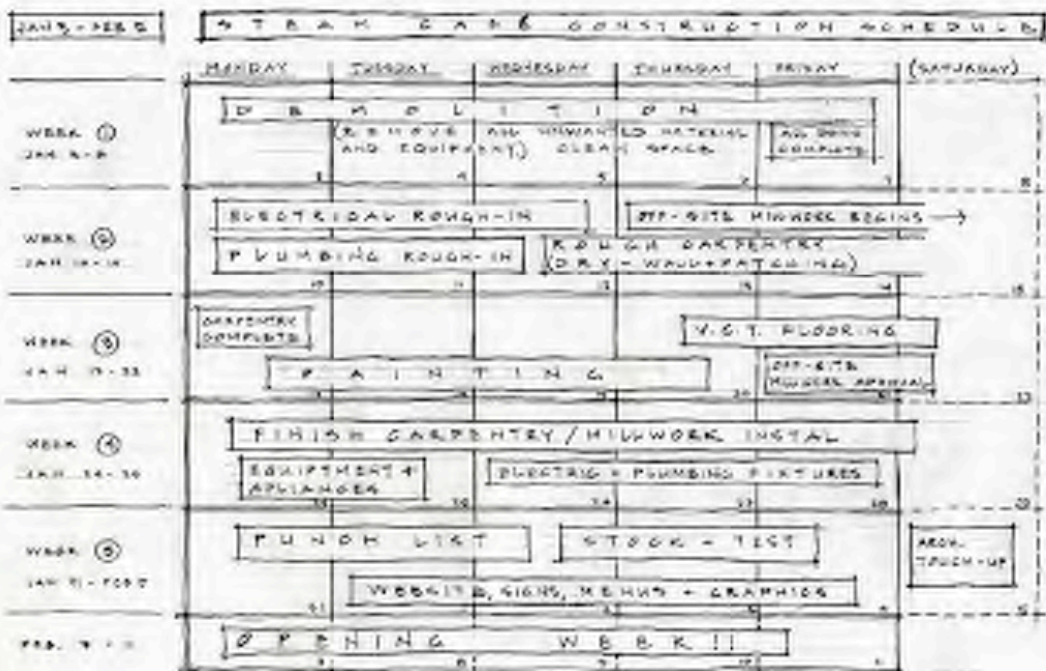 JAN 3 - FEB 5
STEAK CAFE CONSTRUCTION SCHEDULE
MONDAY TUESDAY WEDNESDAY THURSDAY FRIDAY (SATURDAY)
WEEK 1
DEMOLITION
(REMOVE ALL UNWANTED MATERIAL
AND EQUIPMENT) CLEAN SPACE
COMPLETE
3 4 5 7 8
WEEK 2
ELECTRICAL ROUGH-IN
OFF-SITE MILLWORK BEGINS →
PLUMBING ROUGH-IN
ROUGH CARPENTRY
(DRY-WALL + PATCHING)
10 11 12 13 14 15
WEEK 3
CARPENTRY
COMPLETE
V.C.T. FLOORING
PAINTING
OFF-SITE
MILLWORK
WEEK 4
FINISH CARPENTRY/MILLWORK INSTAL
EQUIPTMENT +
APLIANCES
ELECTRIC + PLUMBING FIXTURES
WEEK 5
PUNCH LIST
STOCK - TEST
ARCH.
TOUCH-UP
WEBSITE, SIGNS, MENUS + GRAPHICS
31
FEB.
OPENING WEEK!!